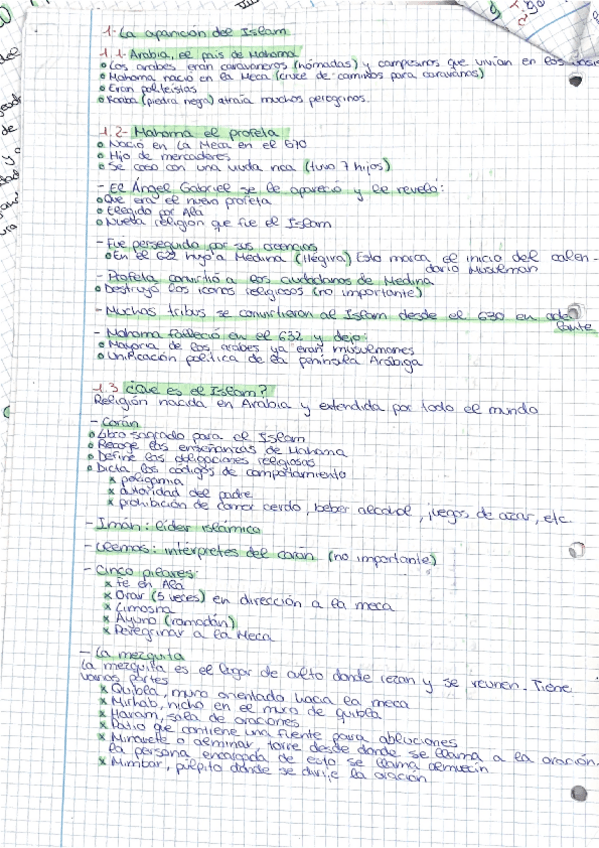 1. La aparición del Islam
1.1- Arabia, el país de Mahoma
Los arabes eran caravaneros (nómadas) y campesinos que vivian en los oasis
Mahoma nació en la Meca (cruce de caminos para caravanas)
Eran politeistas
Kaaba (piedra negra) atraía muchos peregrinos.
1.2- Mahoma el profeta
Nació en La Meca en el 570
Hijo de mercaderes
Se caso con una viuda rica (tuvo 7 hijos)
- El Ángel Gabriel se le apareció y le reveló:
Que era el nuevo profeta
Elegido por Ala
Nueva religión que fue el Islam
- Fue perseguido por sus creencias
En el 622 huyo a Medina (Hégira) Esto marca el inicio del calen-
dario Musulman
- Profeta convirtió a los ciudadanos de Medina
Destruyó los iconos religiosos (no importante)
- Muchas tribus se convirtieron al Islam desde el 630 en ade
lante
- Mahoma falleció en el 632 y dejo:
Mayoria de los arabes ya eran musulmanes
Unificación politica de la peninsula Arábiga
1.3 ¿Que es el Islam?
Religión nacida en Arabia y extendida por todo el mundo
- Corán
Libro sagrado para el Islam
Recoge las enseñanzas de Mahoma
Define las obligaciones religiosas
Dicta los códigos de comportamiento
x poligamia
x autoridad del padre
x prohibición de comer cerdo, beber alcohol, juegos de azar, etc.
- Imán: líder islámico
- Ulemas: intérpretes del corán (no importante)
- Cinco pilares:
x Fe en Ala
x Orar (5 veces) en dirección a la meca
x Limosna
x Ayuno (ramadán)
x Peregrinar a la Meca
- La mezquita
La mezquita es el lugar de culto donde rezan y se reunen. Tiene
varias partes
x Quibla, muro orientado hacia la meca
x Mirhab, nicho en el muro de quibla
x Haram, sala de oraciones
x Patio que contiene una fuente para abluciones
x Minarete o alminar, torre desde donde se llama a la oración.
la persona encargada de esto se llama almuecín
x Mimbar, púlpito donde se dirije la oración